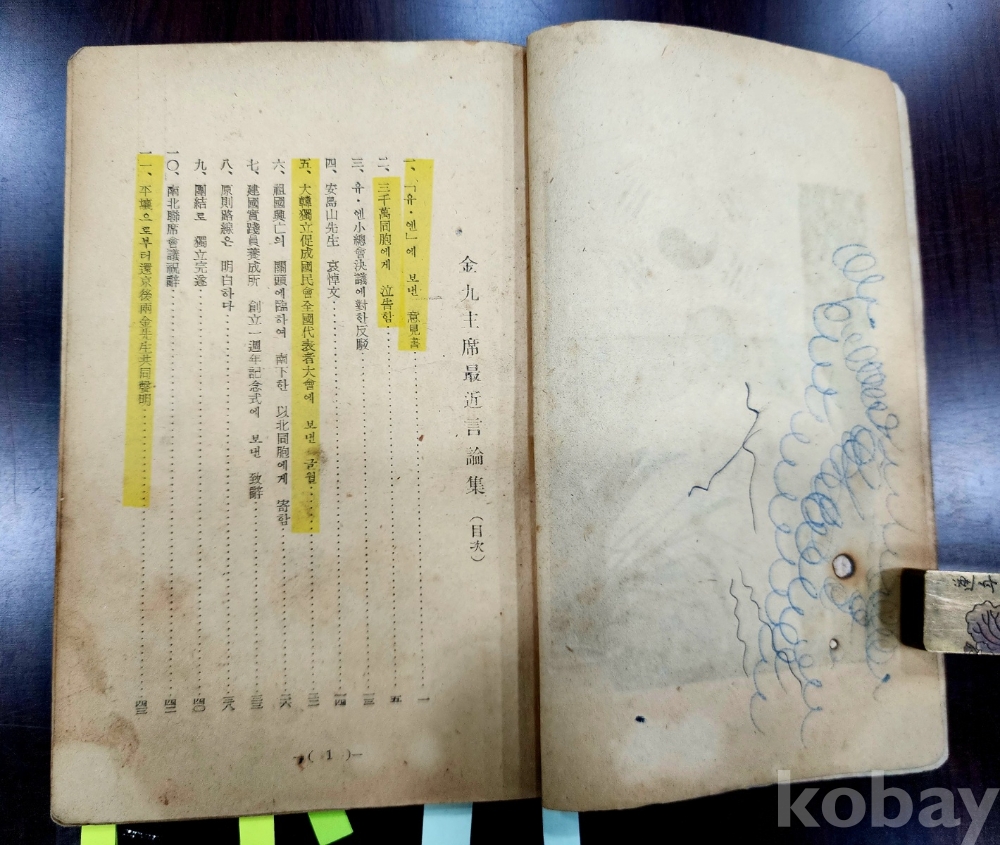 金九主席最近言論集 (目次)
一、「유·엔」에 보낸 意見書 一
二、三千萬同胞에게 泣告함 五
三、유·엔小總會決議에對한反駁 一三
四、安島山先生 哀悼文 一四
五、大韓獨立促成國民會全國代表者大會에 보낸 글월
六、祖國興亡의 關頭에臨하여 南下한 以北同胞에게 寄함
七、建國實踐員養成所 創立一週年記念式에 보낸 致辭
八、原則路線은 明白하다
九、團結로 獨立完遂 四〇
一〇、南北聯席會議祝辭 四二
一一、平壤으로부터還京後兩金先生共同聲明 四三
—( 1 )—
kobay